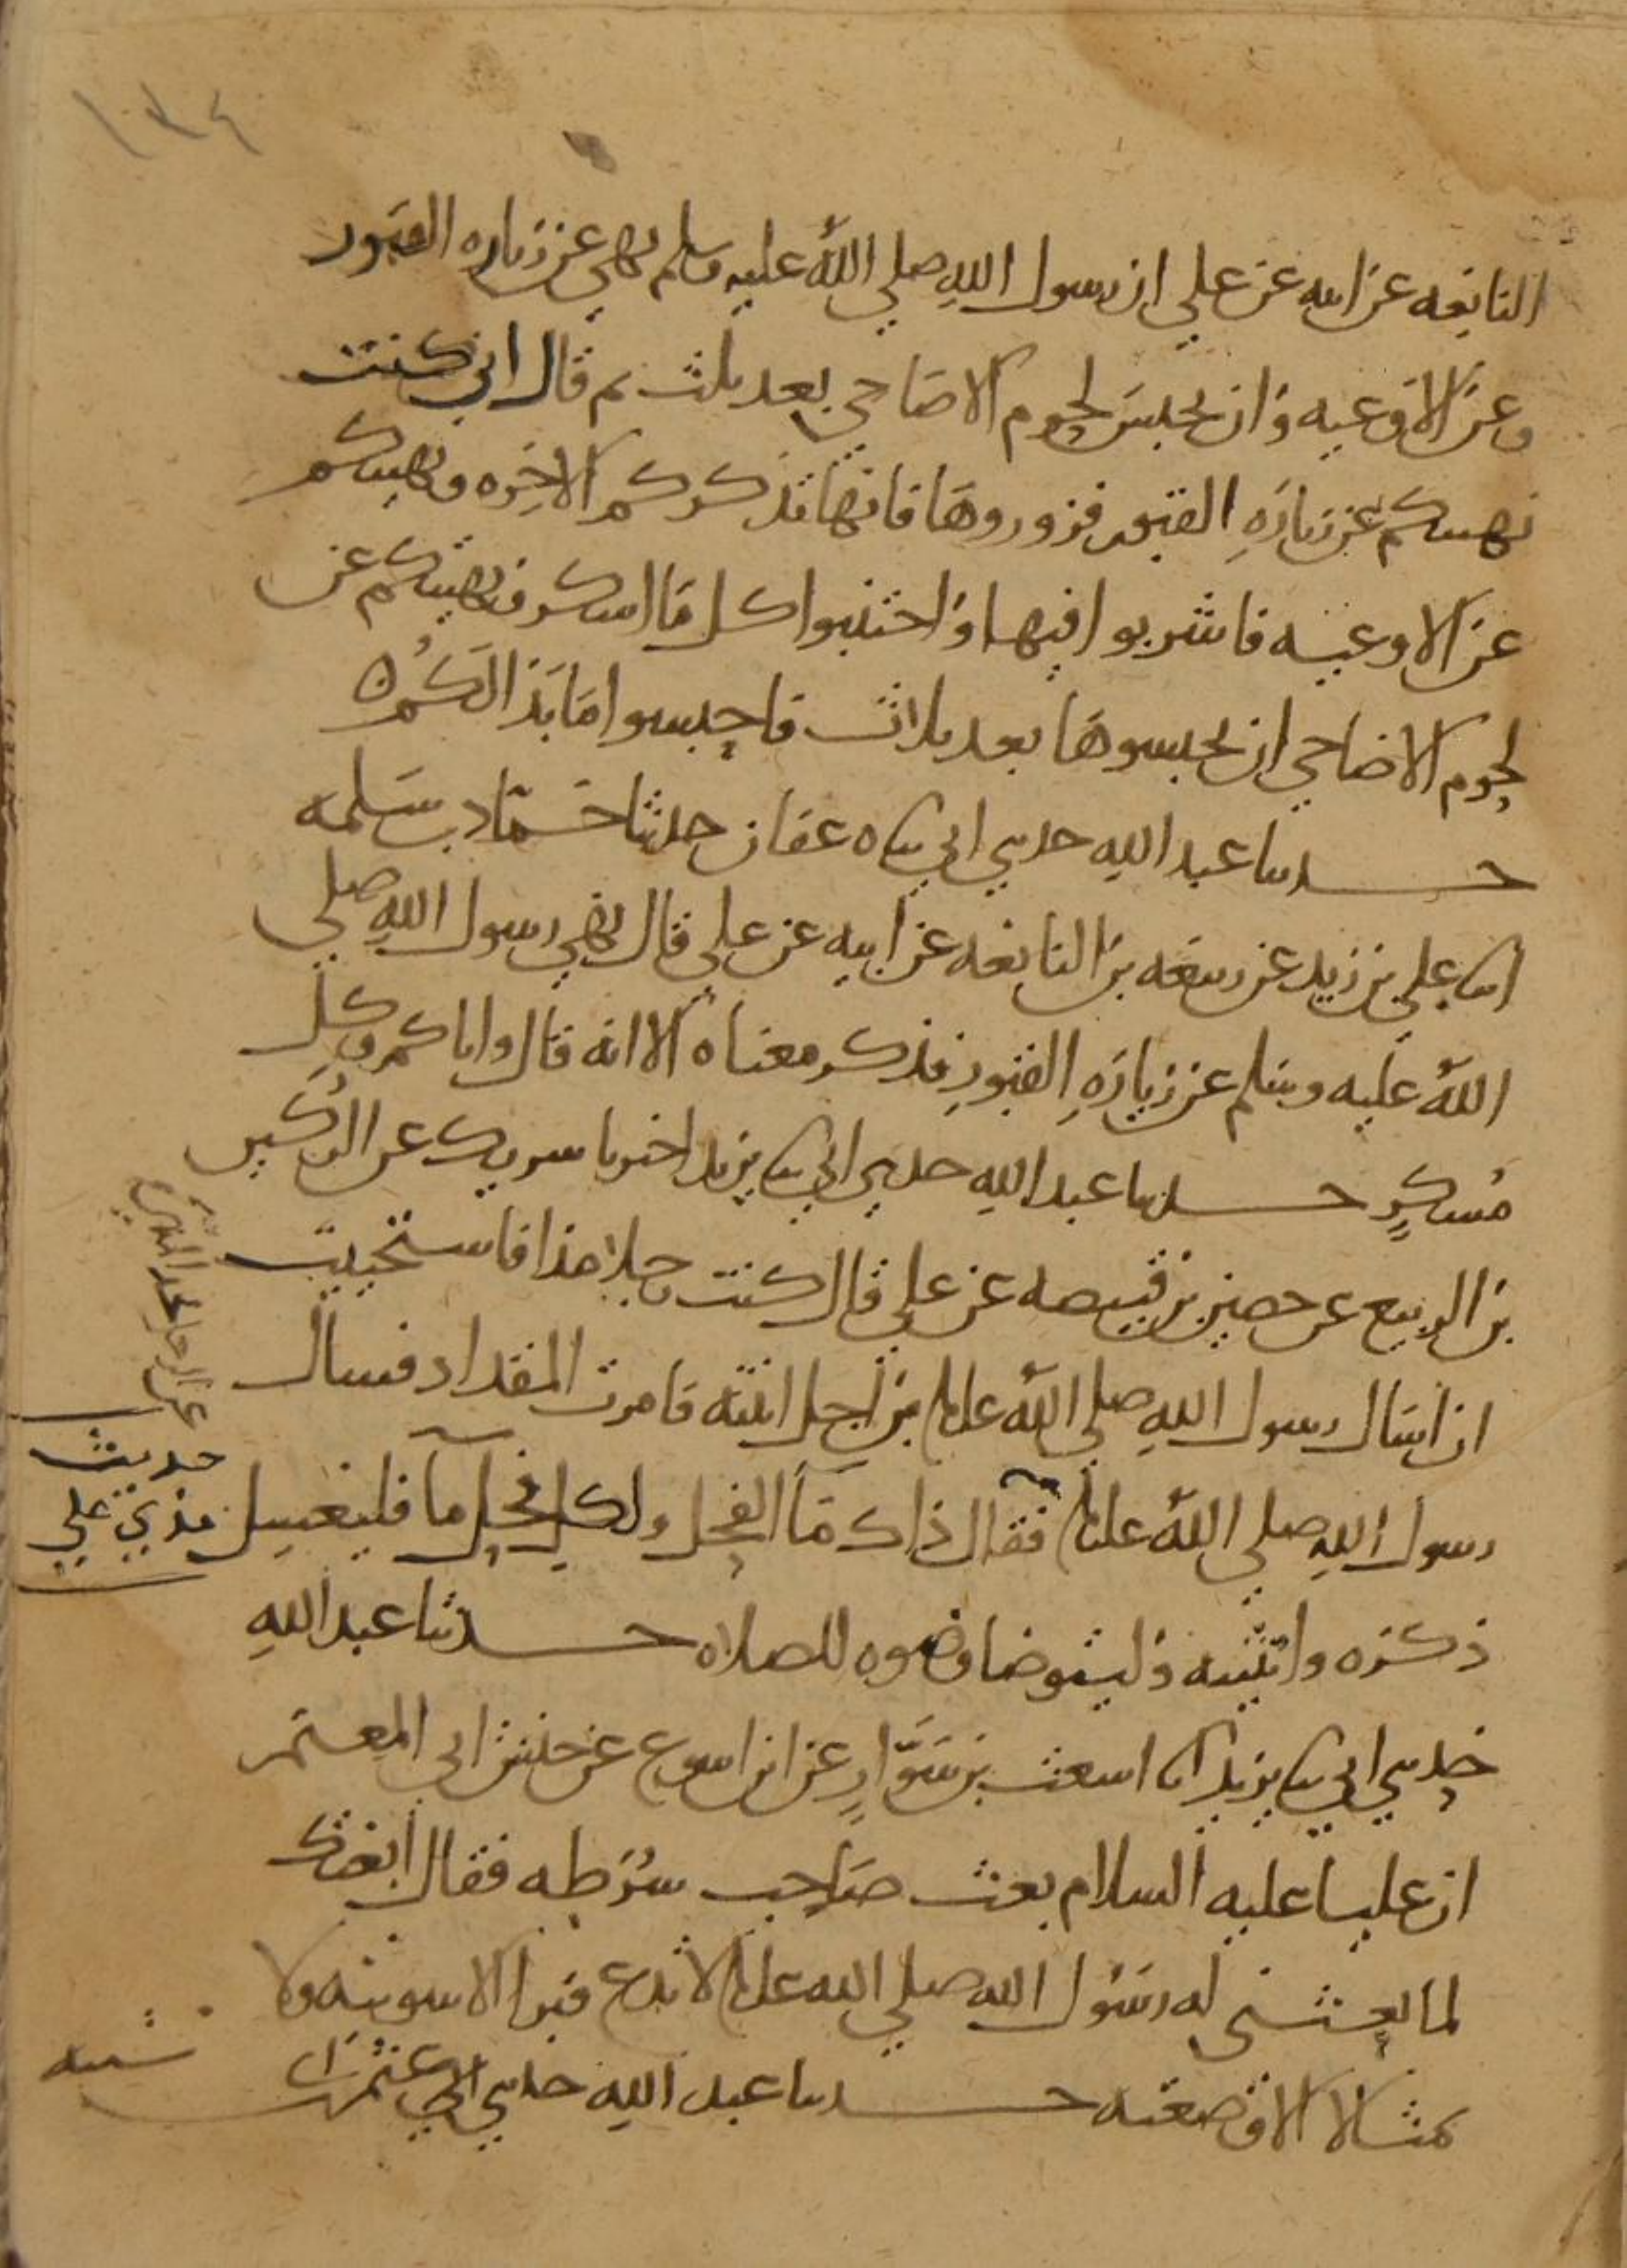 ١٣٤
النابغه عن ابيه عن علي ان رسول الله صلي الله عليه وسلم نهي عن زياره القبور
وعن الاوعيه وان تحبس لحوم الاضاحي بعد ثلث ثم قال اني كنت
نهيتكم عن زيارَهِ القبور فزوروهَا فانها تذكركم الاخِره ونهيتكم
عن الاوعيه فاشربوا فيها واجتنبوا كل ما اسكر ونهيتكم عن
لحوم الاضاحي ان تحبسوها بعد ثلاث فاحبسوا مَا بَدَا لكُم ٥
حدثنا عبد اللهِ حدثني ابي ثناه عفان حدثنا حَمّاد بن سَلمه
انا علي بن زيد عن ربيعَه بن النابغه عن ابيه عن علي قال نهي رسول اللهِ صلي
اللهُ عليه وسلم عن زيارَهِ القبورِ فذكر معناه الا انه قال واياكم وكل
مُسكرٍ حدثنا عبد اللهِ حدثني ابي ثنا يزيد اخبرنا شريك عن الرُكين
بن الربيع عن حصين بن قبيصه عن علي قال كنت رجلا مذا فاستحييت
ان اسَال رسول اللهِ صلي اللهُ عليه وسلم من اجل ابنته فامرت المقداد فسال
رسول اللهِ صلي اللهُ عليه وسلم فقال ذاك مَا الفحل ولكل فحل ما فليغسِل
حديث
مذي علي
ذكره وانثييه وليتوضا وضوه للصلاه حدثنا عبد اللهِ
حدثني ابي ثنا يزيد انا اشعث بن سَوَّارٍ عن ابن اشوع عن حنش ابي المعتمر
ان عليا عليه السلام بعث صَاحِب شُرَطِه فقال ابعثك
لما بعثني له رسُول الله صلي الله عليه وسلم لا تدع قبرا الا سويته ولا
تمثالا الا وضعته حدثنا عبد اللهِ حدثني ابي عثمن بن